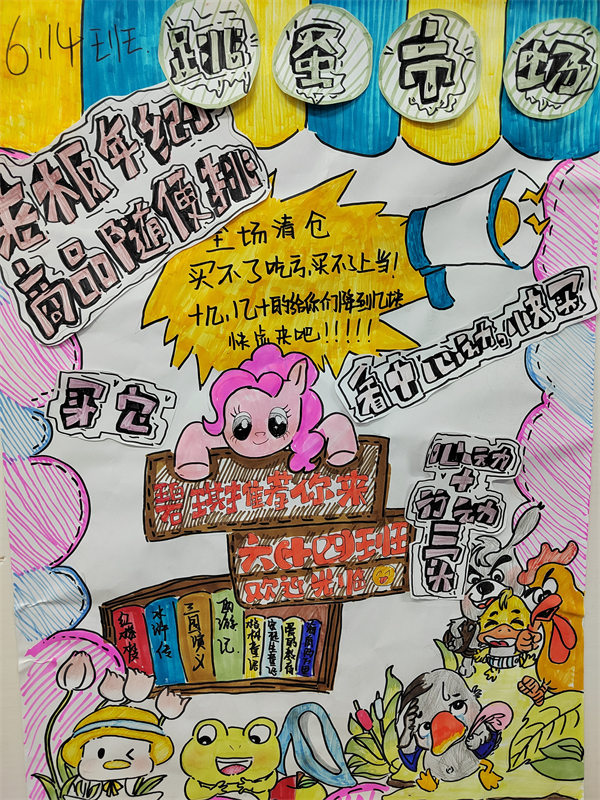 6.14班
跳蚤市场
老板年纪小
商品随便挑
全场清仓
买不了吃亏,买不了上当!
十几,几十的给你们降到几块
快点来吧!!!!!
看中心动的快买
买它
心动
+
行动
=买
碧琪推荐你来
六(14)班
欢迎光临
红楼梦
水浒传
三国演义
西游记
格林童话
安徒生童话
爱的教育